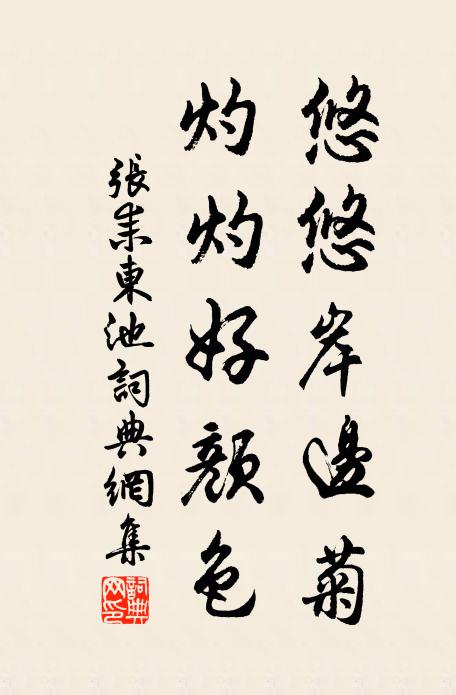 悠悠岸邊菊
灼灼好顏色
張耒東池詞典網集
詞典網印